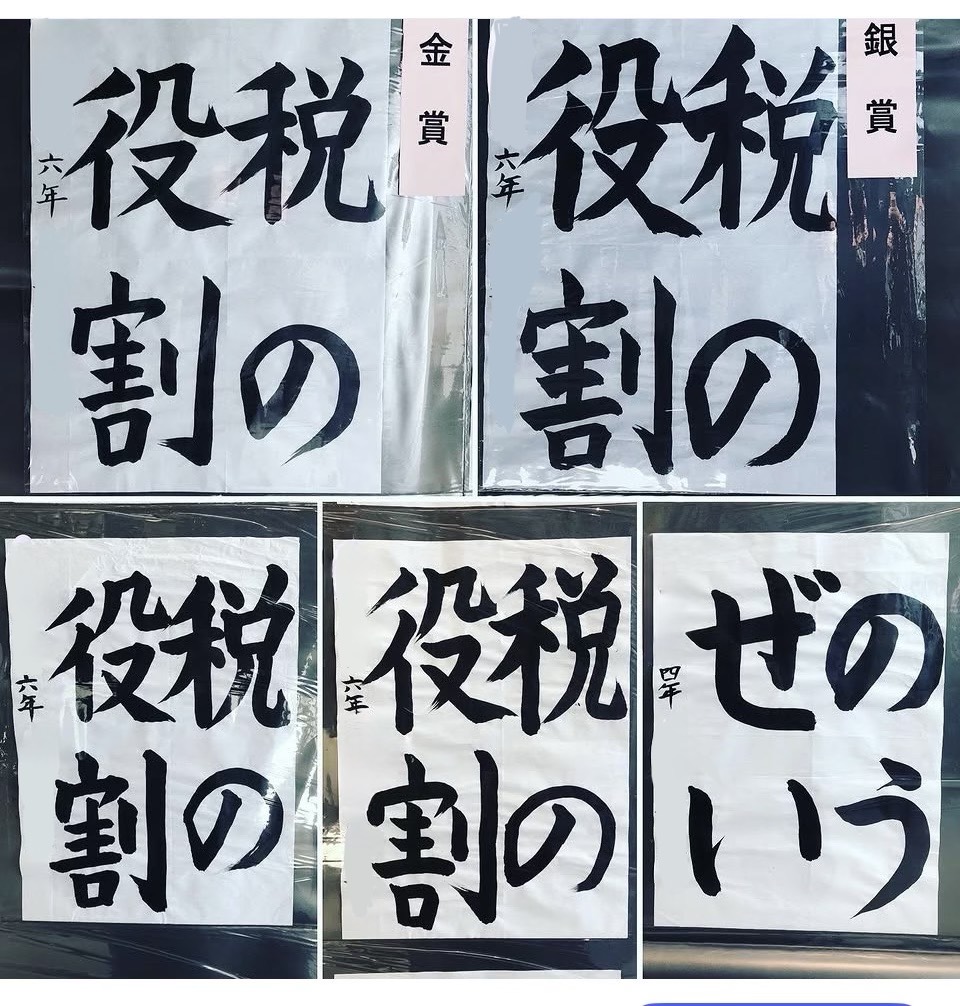 金賞
税の
役割
六年
銀賞
税の
役割
六年
税の
役割
六年
税の
役割
六年
のう
ぜい
四年